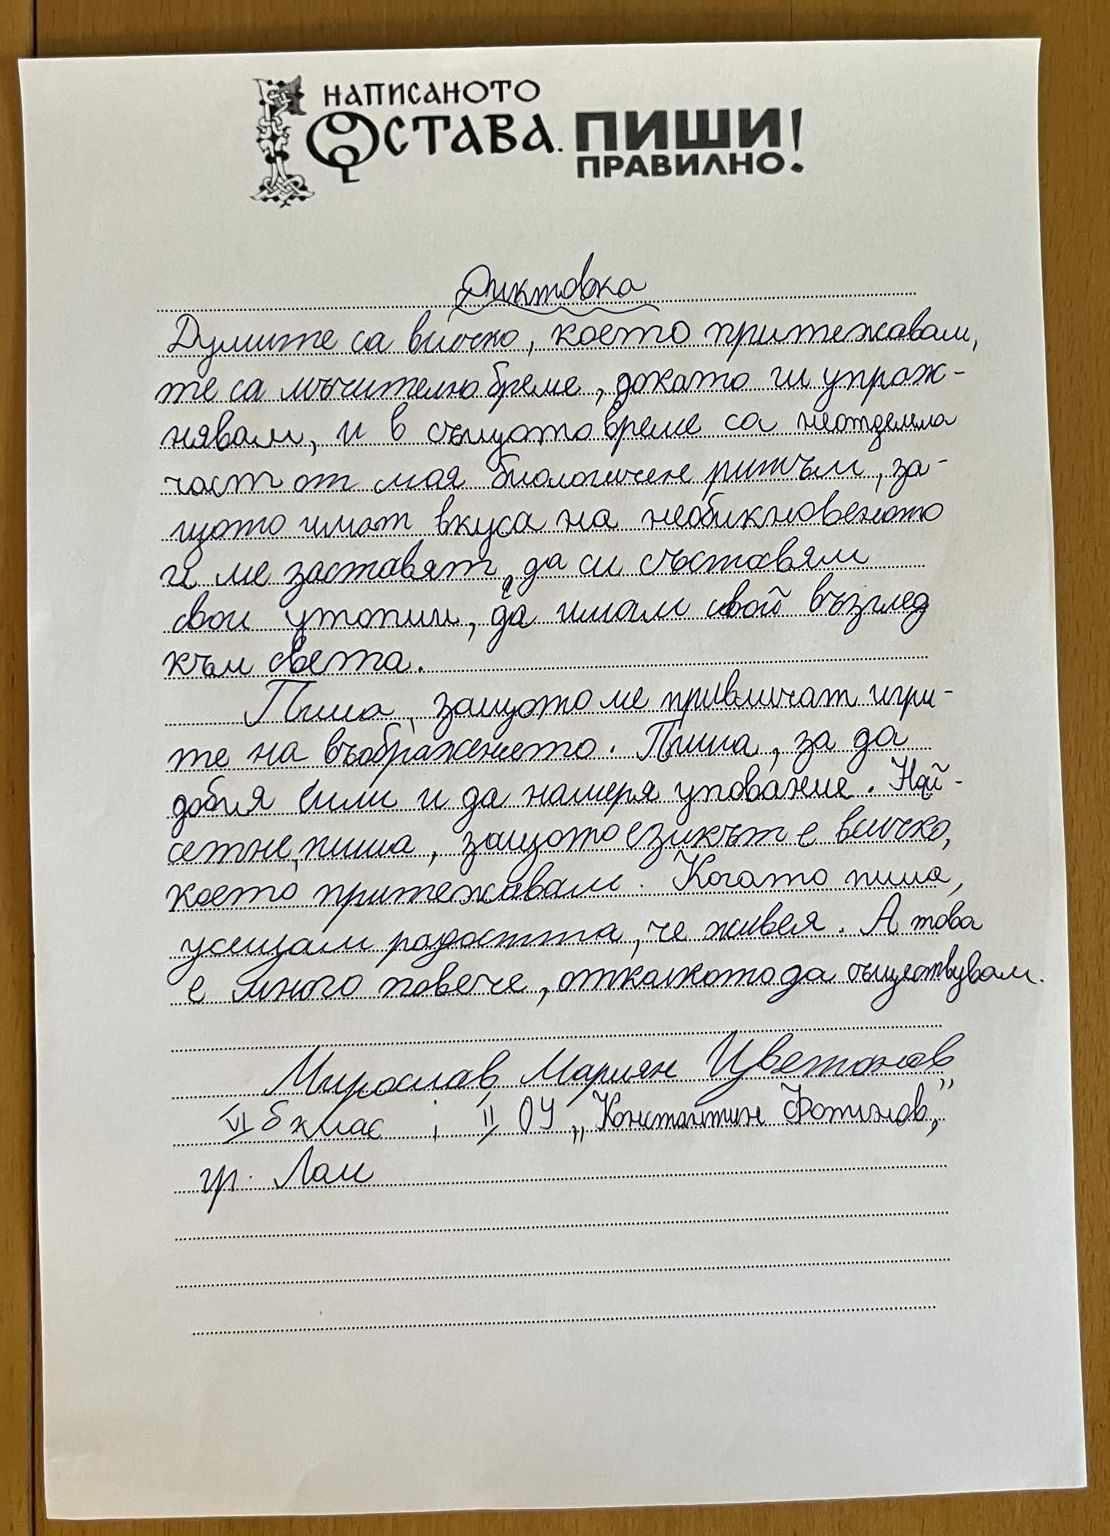 НАПИСАНОТО
ОСТАВА. ПИШИ
ПРАВИЛНО!
Диктовка
Думите са всичко, което притежавам,
те са мъчително бреме, докато ги упраж-
нявам, и в същото време са неотделима
част от моя биологичен ритъм, за-
щото имат вкуса на необикновеното
и ме заставят да си съставям
свои утопии, да имам свой възглед
към света.
Пиша, защото ме привличат игри-
те на въображението. Пиша, за да
добия сили и да намеря упование. Най-
сетне, пиша, защото езикът е всичко,
което притежавам. Когато пиша,
усещам радостта, че живея. А това
е много повече, отколкото да съществувам.
Мирослав Мариян Цветанов
VI б клас ; II ОУ „Константин Фотинов,"
гр. Лом